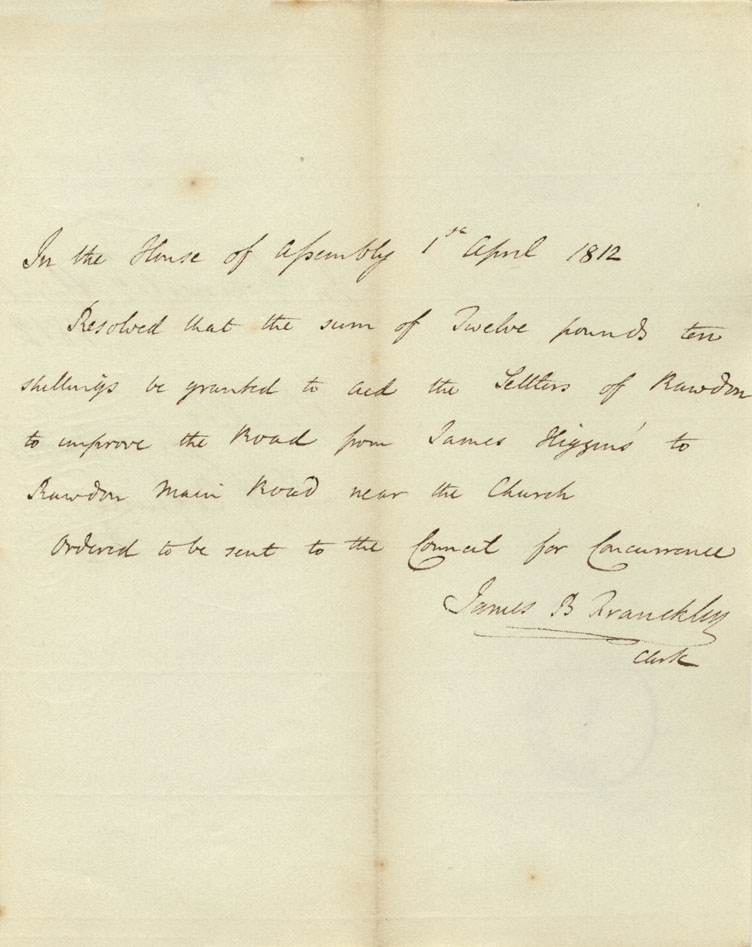 In the House of Assembly 1st April 1812
Resolved that the sum of Twelve pounds ten
shillings be granted to aid the Settlers of Rawdon
to improve the Road from James Higgins' to
Rawdon Main Road near the Church
Ordered to be sent to the Council for Concurrence
James B Franckley
Clerk